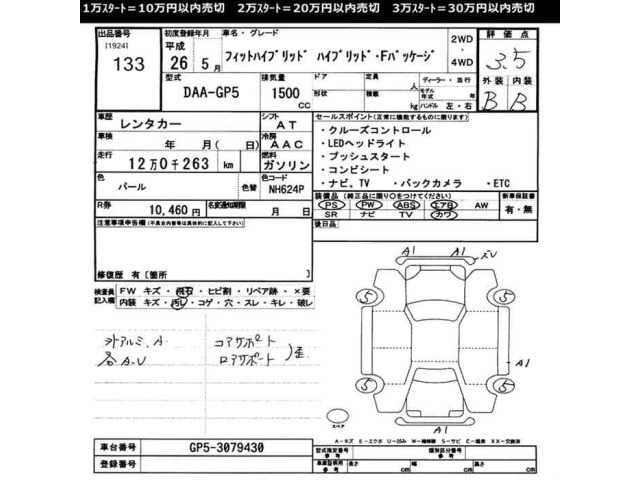 1万スタート＝10万円以内売切 2万スタート＝20万円以内売切 3万スタート＝30万円以内売切
出品番号 初度登録年月 車名・グレード 2WD 評価点
[1924] 平成 フィットハイブリッド ハイブリッド・Fパッケージ ・ 3.5
133 26 5月 4WD
型式 排気量 ドア 定員 人 ディーラー・並行 外装 内装
DAA-GP5 1500 CC 形状 積載 kg モデル年式 年 ハンドル 左・右 B B
車歴 レンタカー シフト AT セールスポイント(正常に機能するものに限ります)
車検 年 月(日) 冷房 AAC ・クルーズコントロール
・LEDヘッドライト
走行 12万0千263 km 燃料 ガソリン ・プッシュスタート
・コンビシート
色 パール 色替 色コード NH624P ・ナビ、TV ・バックカメラ ・ETC
R券 10,460円 名変通知期限 月 日 装備品(純正品に限り○をつけてください) 新車保証書
PS PW ABS エアB AW 有・無
SR ナビ TV カワ
注意事項申告欄(不具合内容等は具体的に記入して下さい) 後日品
修復歴 有[箇所 ]
検査員記入欄 FW キズ・飛石・ヒビ割・リペア跡・×要
内装 キズ・汚レ・コゲ・穴・スレ・キレ・破レ
A1 ズレ
A1
5 5
外アルミ.A コアサポート
各A.U ロアサポート )歪
A1
5 5
A1
スペア
A－キズ E－エクボ U－凹ミ W－補修跡 S－サビ C－腐食 XX－交換済
車台番号 GP5-3079430 型式指定番号 参考 類別区分番号 参考
登録番号 車庫証明用 参考 長さ cm 幅 cm 高さ cm